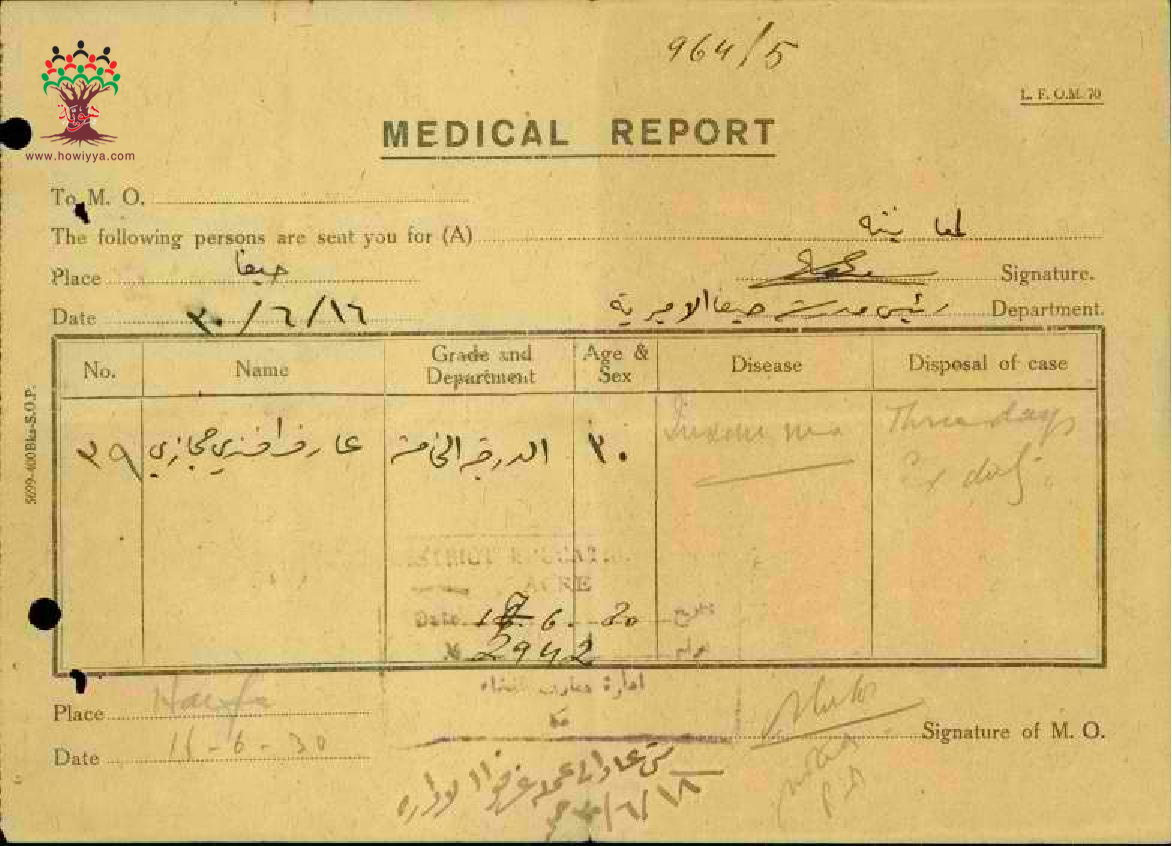 964/5
L. F. O.M. 70
www.howiyya.com
MEDICAL REPORT
To M. O.
The following persons are sent you for (A) لمعاينته
Place حيفا
Signature.
Date ١٦/٦/٣٠
رئيس مدرسة حيفا الاميرية Department.
No. Name Grade and Department Age & Sex Disease Disposal of case
٣٩ عارف افندي حجازي الدرجة الخامسة ٣٠ Three days
Ex duty
5699-400 Bks-S.O.P.
DISTRICT EDUCATI
ACRE
Date 18.6.30 تاريخ
№ 2942
ادارة معارف لواء
عكا
Place Haifa
Date 16-6-30
Signature of M. O.
١٨/٦/٣٠